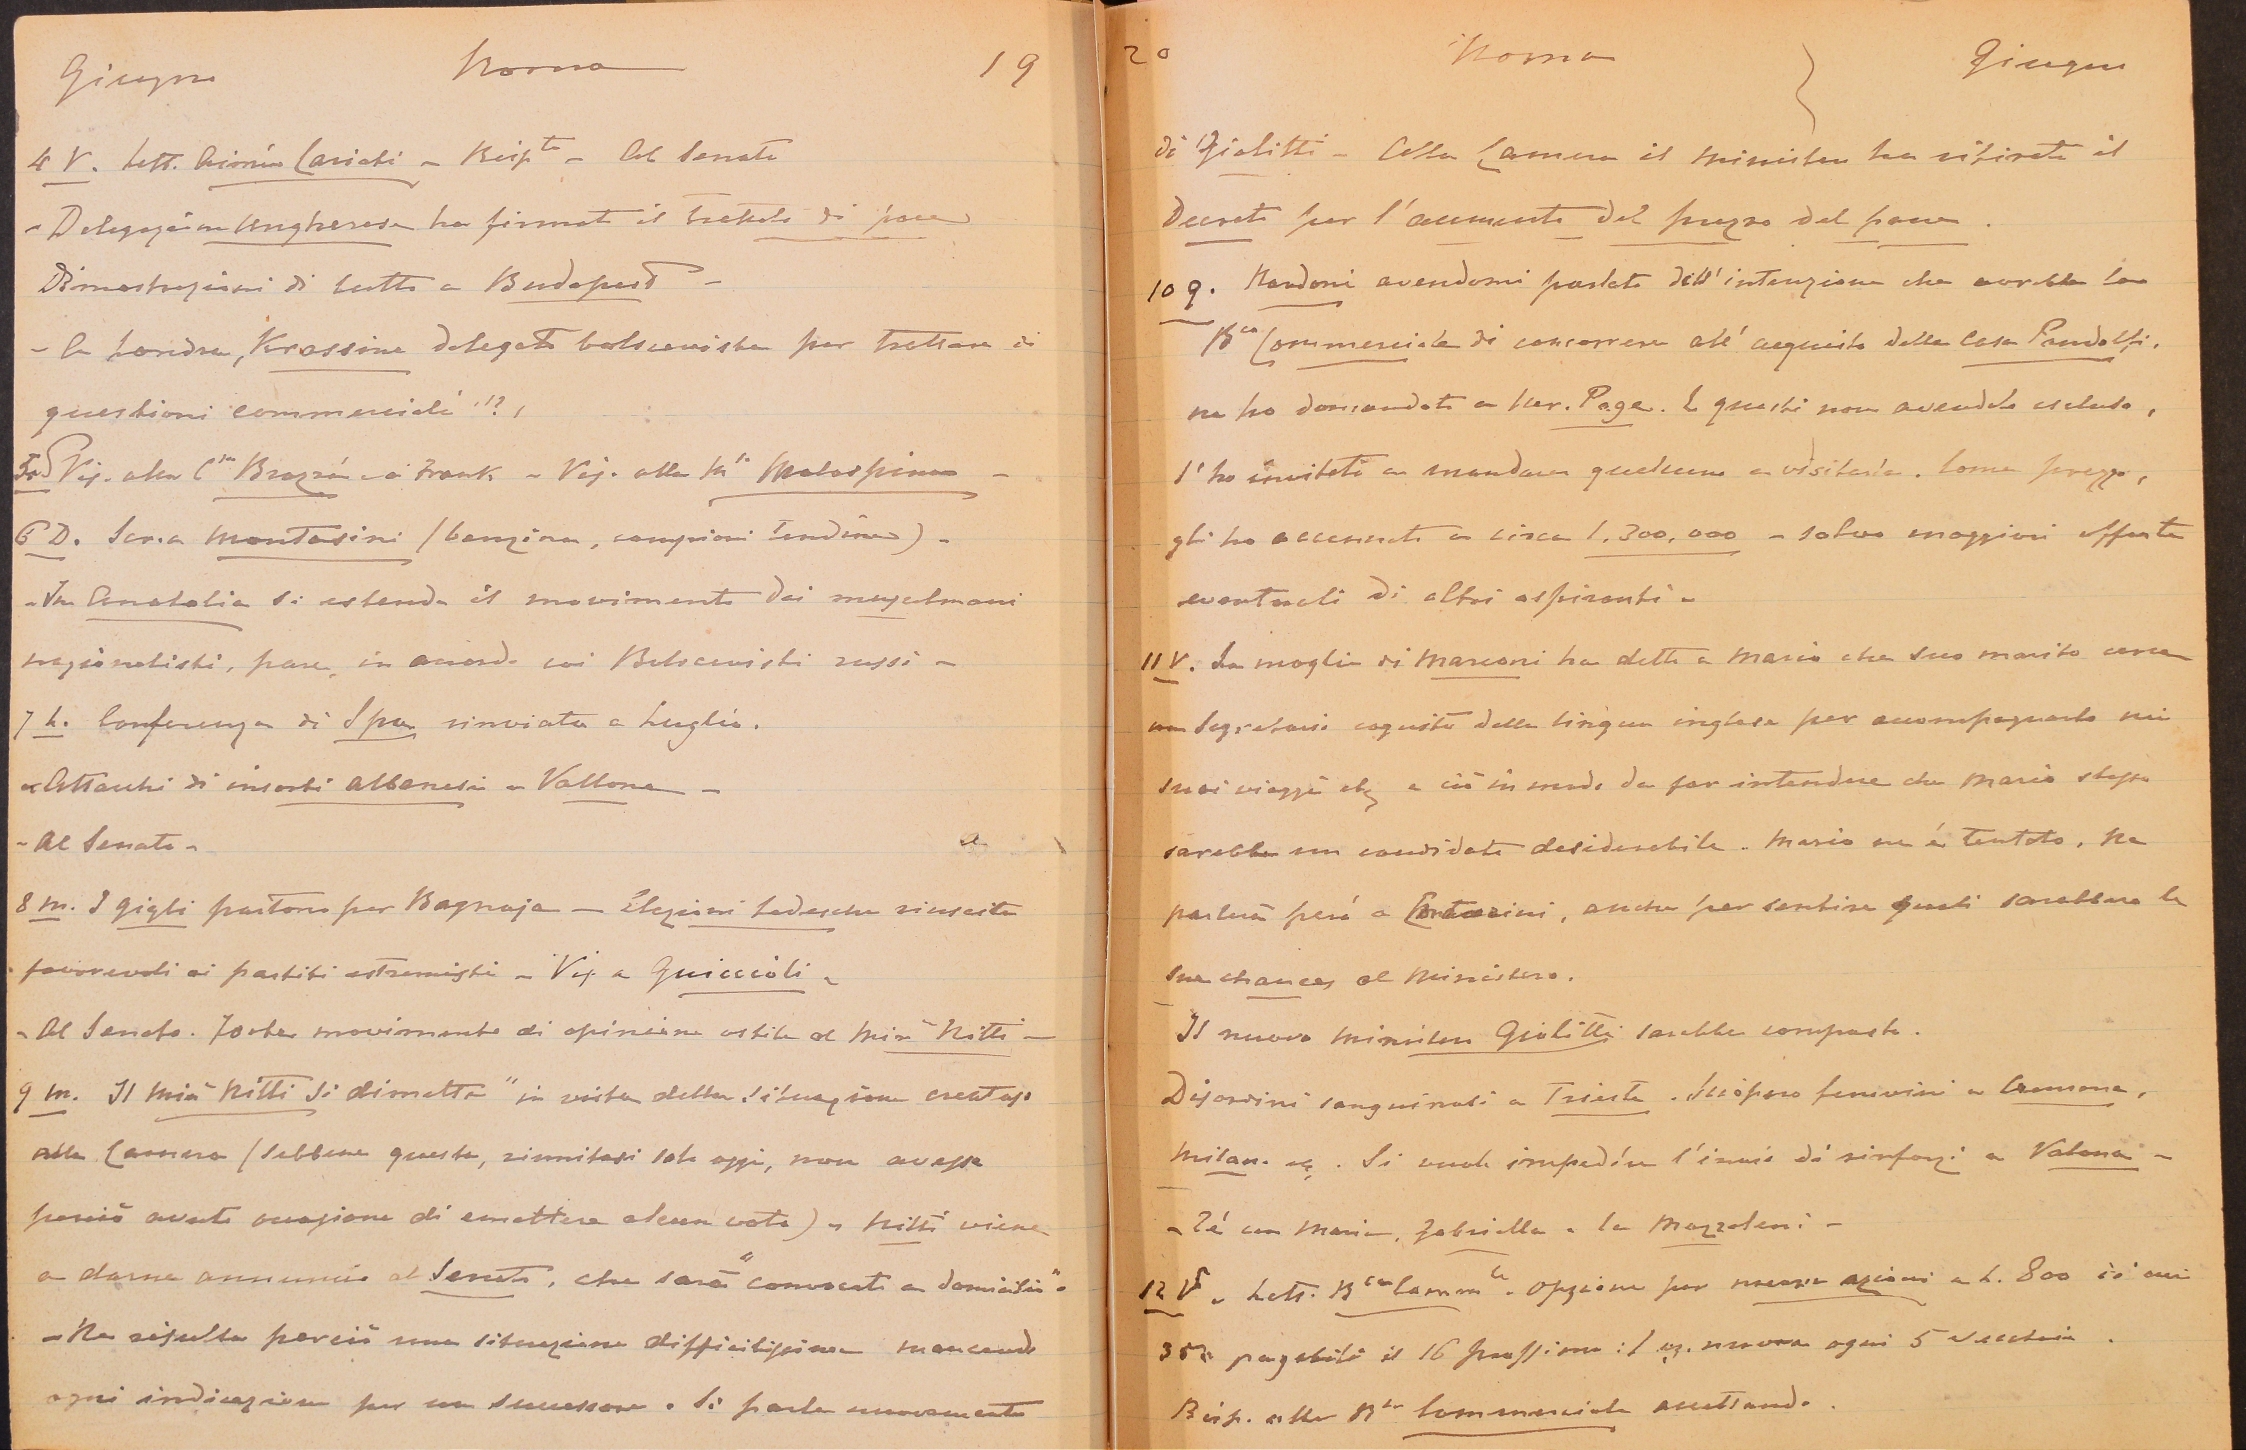 Giugno Roma 19
4 V. Lett. Cariati - Risp.ta - Al Senato
- Delegazione Ungherese ha firmato il trattato di pace
Dimostrazioni di lutto a Budapest -
- A Londra, Krassine delegato bolscevista per trattare di
questioni commerciali !?,
5 Vis. alla C.ssa Brazzà - a Frank - Vis. alla M.sa Malaspina -
6 D. Scr. a Montasini (benzina, campioni Tendine) -
- In Anatolia si estende il movimento dei musulmani
nazionalisti, pare, in accordo coi Bolscevisti russi -
7 L. Conferenza di Spa rinviata a Luglio.
- Attacchi di insorti albanesi a Vallona -
- Al Senato -
8 M. I Gigli partono per Bagnaja - Elezioni tedesche riuscite
favorevoli ai partiti estremisti - Vis. a Guiccioli -
- Al Senato. Forte movimento di opinione ostile al Min.o Nitti -
9 M. Il Min.o Nitti si dimette "in vista della situazione creatasi
alla Camera (sebbene questa, riunitasi solo oggi, non avesse
perciò avuto occasione di emettere alcun voto) - Nitti viene
a darne annuncio al Senato, che sarà "convocato a domicilio" -
- Ne risulta perciò una situazione difficilissima mancando
ogni indicazione per un successore. Si parla nuovamente
20 Roma Giugno
di Giolitti - Alla Camera il Ministero ha ritirato il
Decreto per l'aumento del prezzo del pane.
10 G. Nardoni avendomi parlato dell'intenzione che avrebbe la
B.ca Commerciale di concorrere all'acquisto della Casa Pandolfi,
ne ho domandato a Page. E questi non avendolo escluso,
l'ho invitato a mandare qualcuno a visitarla. Come prezzo,
gli ho accennato a circa 1,300,000 - salvo maggiori offerte
eventuali di altri aspiranti -
11 V. La moglie di Marconi ha detto a Mario che suo marito cerca
un Segretario cognito della lingua inglese per accompagnarlo nei
suoi viaggi etc, e ciò in modo da far intendere che Mario stesso
sarebbe un candidato desiderabile. Mario ne è tentato. Ne
parlerà però a Contarini, anche per sentire quali sarebbero le
sue chances al Ministero.
Il nuovo Ministero Giolitti sarebbe composto.
Disordini sanguinosi a Trieste. Sciopero ferrovieri a Cremona,
Milano ec. Si vuole impedire l'invio di rinforzi a Valona -
- Té con Maria, Gabriella e la Mazzoleni -
12 Lett. B.ca Comm.le - Opzione per nuove azioni a L. 800 di cui
pagabili il 16 prossimo: 1 az. nuova ogni 5 vecchie.
Risp. alla B.ca Commerciale accettando.